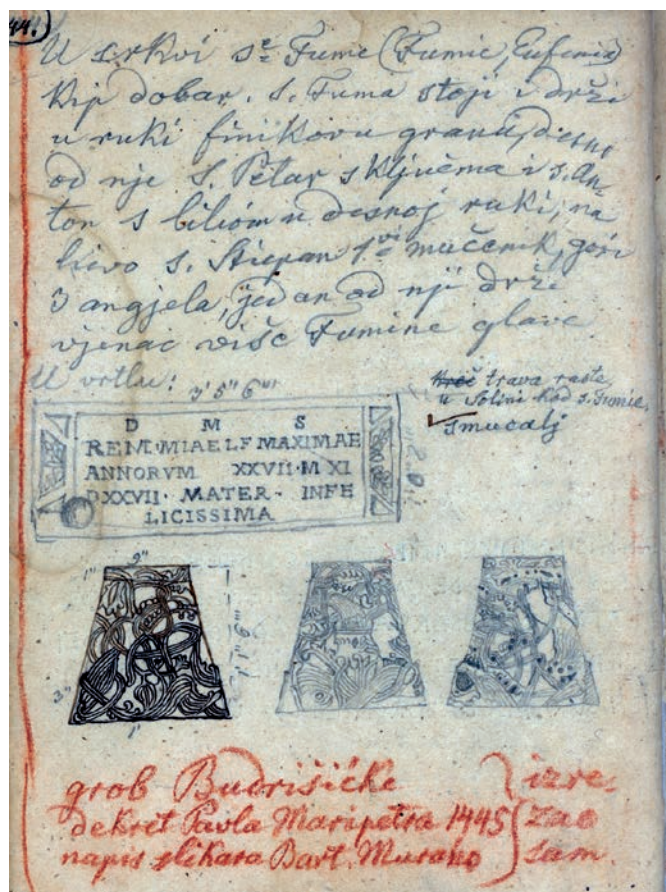 44.
U crkvi s.e Fume (Fumie, Eufemia)
kip dobar. s. Fuma stoji i drži
u ruki finikovu granu, desno
od nje S. Petar s ključema i s. An-
ton s biliom u desnoj ruki; na
livo s. Stiepan 1.vi mučenik, gori
3 angjela, jedan od nji drži
vjenac više Fumine glave
U vrtlu: 3' 5" 6"'
trava raste
u Solini kod s. Fumie,
smucalj
D M S
REMMIAE L F MAXIMAE
ANNORVM XXVII·M XI
DXXVII· MATER· INFE
LICISSIMA
9"
1"
3"
1"
grob Budrišićke
dekret Pavla Maripetra 1445
napis slikara Bart. Murano
izre-
zao
sam.